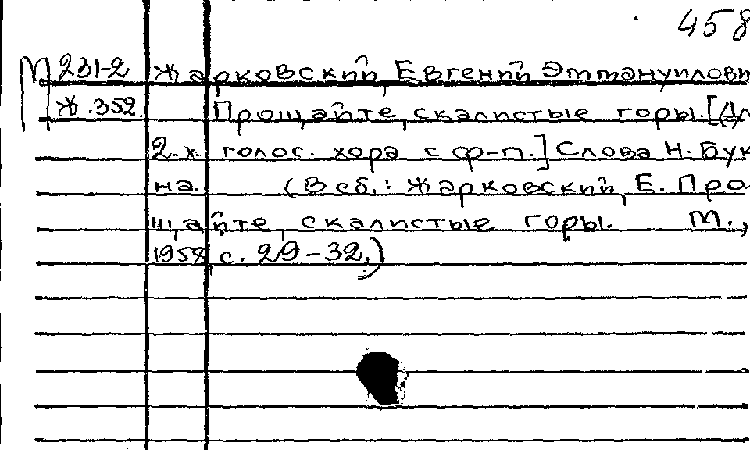 458
М 231-2 Жарковский, Евгений Эммануилови
Ж.352 Прощайте, скалистые горы. [Дл
2-х голос. хора с ф-п.] Слова Н. Бук
на. (В сб.: Жарковский, Е. Про
щайте, скалистые горы. М.,
1958, с. 29-32.)